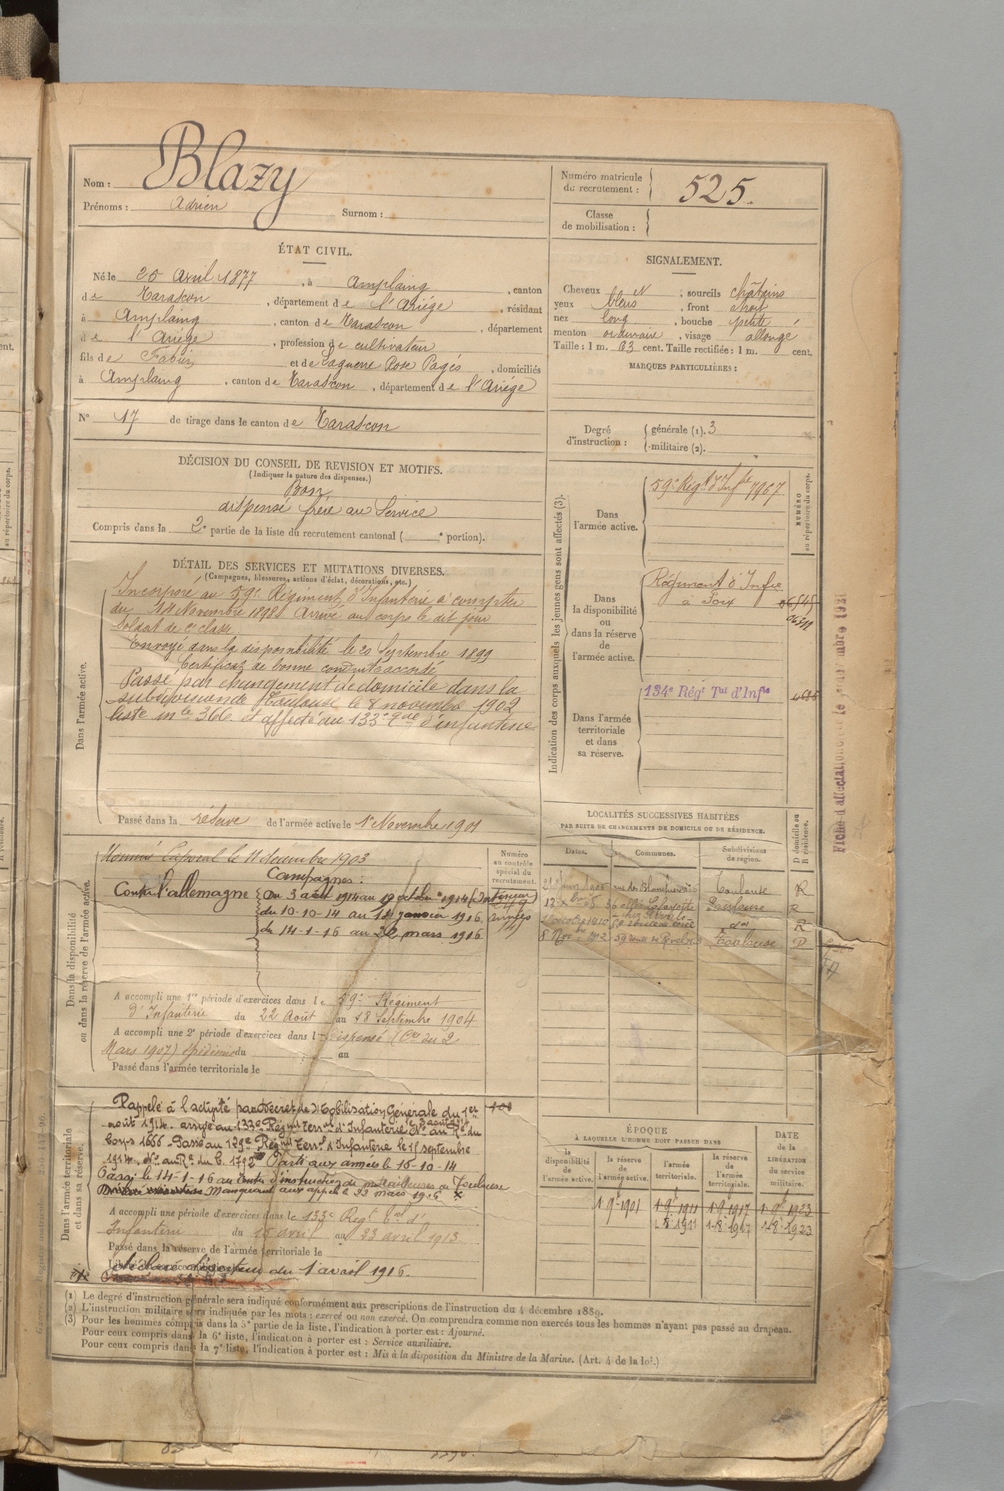 Nom : Blazy
Prénoms : Adrien Surnom :
Numéro matricule de recrutement : 525.
Classe de mobilisation :
ÉTAT CIVIL.
Né le 20 Avril 1877, à Amplaing, canton
de Tarascon, département de l'Ariège, résidant
à Amplaing, canton de Tarascon, département
de l'Ariège, profession de cultivateur
fils de et de Laguerre Rose Pagès, domiciliés
à Amplaing, canton de Tarascon, département de l'Ariège
N° 17 de tirage dans le canton de Tarascon
SIGNALEMENT.
Cheveux , sourcils châtains
yeux bleus, front étroit
nez long, bouche petite
menton ordinaire, visage allongé
Taille : 1 m. 63 cent. Taille rectifiée : 1 m. cent.
MARQUES PARTICULIÈRES :
Degré d'instruction : générale (1). 3
militaire (2).
DÉCISION DU CONSEIL DE REVISION ET MOTIFS.
(Indiquer la nature des dispenses.)
Bon
dispensé frère au Service
Compris dans la 2e partie de la liste du recrutement cantonal ( e portion).
DÉTAIL DES SERVICES ET MUTATIONS DIVERSES.
(Campagnes, blessures, actions d'éclat, décorations, etc.)
Dans l'armée active.
Incorporé au 59e Régiment d'Infanterie à compter
du 14 Novembre 1898. Arrivé au corps le dit jour
Soldat de 2e classe.
Envoyé dans la disponibilité le 20 Septembre 1899
Certificat de bonne conduite accordé
Passé par changement de domicile dans la
subdivision de Toulouse le 8 novembre 1902
liste m le 366 et affecté au 133e d'infanterie
Passé dans la réserve de l'armée active le 1er Novembre 1901
Indication des corps auxquels les jeunes gens sont affectés (3).
NUMÉRO au répertoire du corps.
Dans l'armée active.
59e Régt d'Infie
Dans la disponibilité ou dans la réserve de l'armée active.
Régiment d'Infie
à Foix
Dans l'armée territoriale et dans sa réserve.
134e Rég Tal d'Infie
LOCALITÉS SUCCESSIVES HABITÉES
PAR SUITE DE CHANGEMENTS DE DOMICILE OU DE RÉSIDENCE.
Dates. Communes. Subdivisions de région. D domicile ou R résidence.
Toulouse R
Toulouse R
R
8 Nov 1902 Toulouse D
Dans la disponibilité ou dans la réserve de l'armée active.
Numéro au contrôle spécial du recrutement.
Nommé Caporal le 11 décembre 1903
Campagnes :
Contre l'allemagne Du 3 août 1914 au octobre 1914 (Intérieur)
du 10-10-14 au 13 janvier 1916 armées
du 14-1-16 au 22 mars 1916
A accompli une 1re période d'exercices dans le 59e Régiment
d'Infanterie du 22 Août au 18 Septembre 1904
A accompli une 2e période d'exercices dans l Dispensé (Cre du 2
Mars 1907) épidémie du au
Passé dans l'armée territoriale le
Dans l'armée territoriale et dans sa réserve.
Rappelé à l'activité par Décret de Mobilisation Générale du 1er
août 1914. arrivé au 133e Régnt Terral d'Infanterie N° au Re du
Corps 1656. Passé au 129e Régnt Terral d'Infanterie le 15 septembre
1914. N° au Re du C. 1792. Parti aux armées le 10-10-14
Passé le 14-1-16 au Centre d'instruction de mitrailleuses de Toulouse
Manquant aux appels le 23 mars 1916
A accompli une période d'exercices dans le 133e Régt Tal d'
Infanterie du 15 avril au 23 avril 1913
Passé dans la réserve de l'armée territoriale le
déclaré déserteur du 1er avril 1916.
ÉPOQUE
À LAQUELLE L'HOMME DOIT PASSER DANS
la disponibilité de l'armée active. la réserve de l'armée active. l'armée territoriale. la réserve de l'armée territoriale. DATE de la LIBÉRATION du service militaire.
1-9-1901 1-9-1911 1-9-1917 1-9-1923
1-8-1911 1-8-1917 1-8-1923
(1) Le degré d'instruction générale sera indiqué conformément aux prescriptions de l'instruction du 4 décembre 1889.
(2) L'instruction militaire sera indiquée par les mots : exercé ou non exercé. On comprendra comme non exercés tous les hommes n'ayant pas passé au drapeau.
(3) Pour les hommes compris dans la 5e partie de la liste, l'indication à porter est : Ajourné.
Pour ceux compris dans la 6e liste, l'indication à porter est : Service auxiliaire.
Pour ceux compris dans la 7e liste, l'indication à porter est : Mis à la disposition du Ministre de la Marine. (Art. 4 de la loi.)